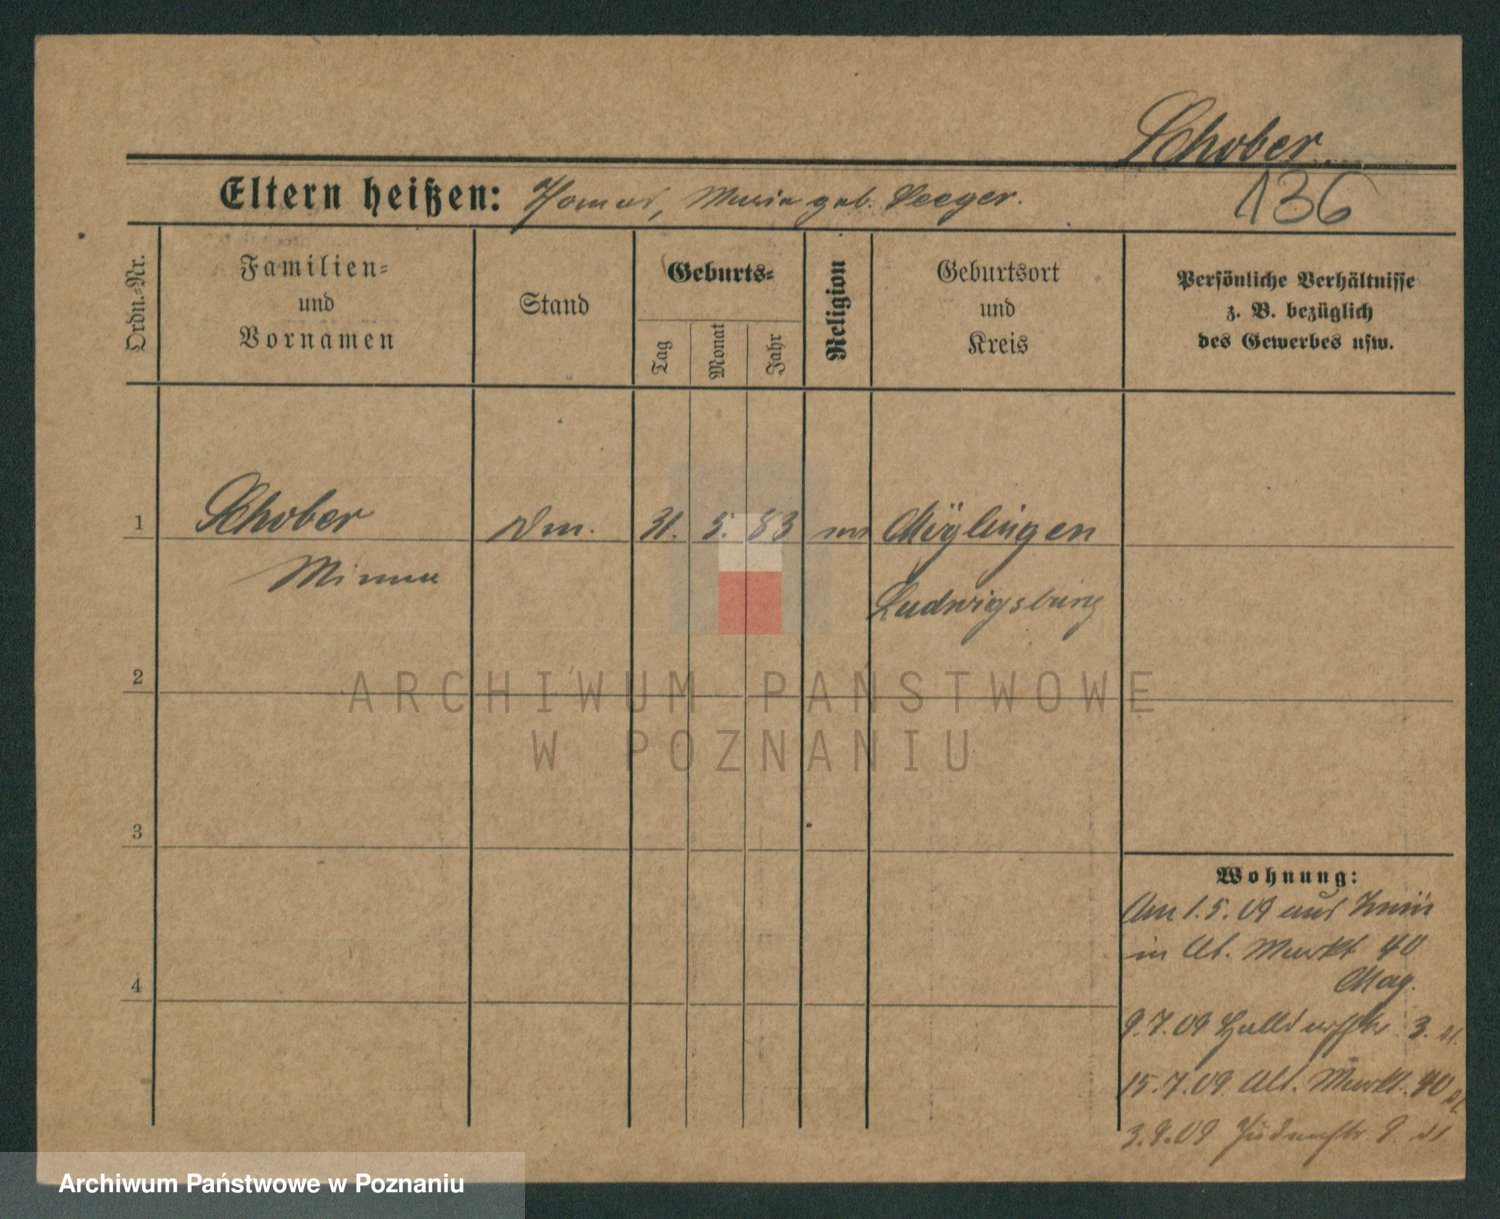 Schober.
136
Eltern heißen: Thomas, Maria geb. Seeger.
Ordn.-Nr.
Familien-
und
Vornamen
Stand
Geburts-
Tag
Monat
Jahr
Religion
Geburtsort
und
Kreis
Persönliche Verhältnisse
z. B. bezüglich
des Gewerbes usw.
1
Schober
31. 5. 83
Möglingen
Minna
Ludwigsburg
2
ARCHIWUM PAŃSTWOWE
W POZNANIU
3
Wohnung:
Am 1.5.09 aus Znin
in Alt. Markt 40
Mag.
4
9.7.09 3.
15.7.09 Alt. Markt. 40
3.9.09 Judenstr. 9
Archiwum Państwowe w Poznaniu